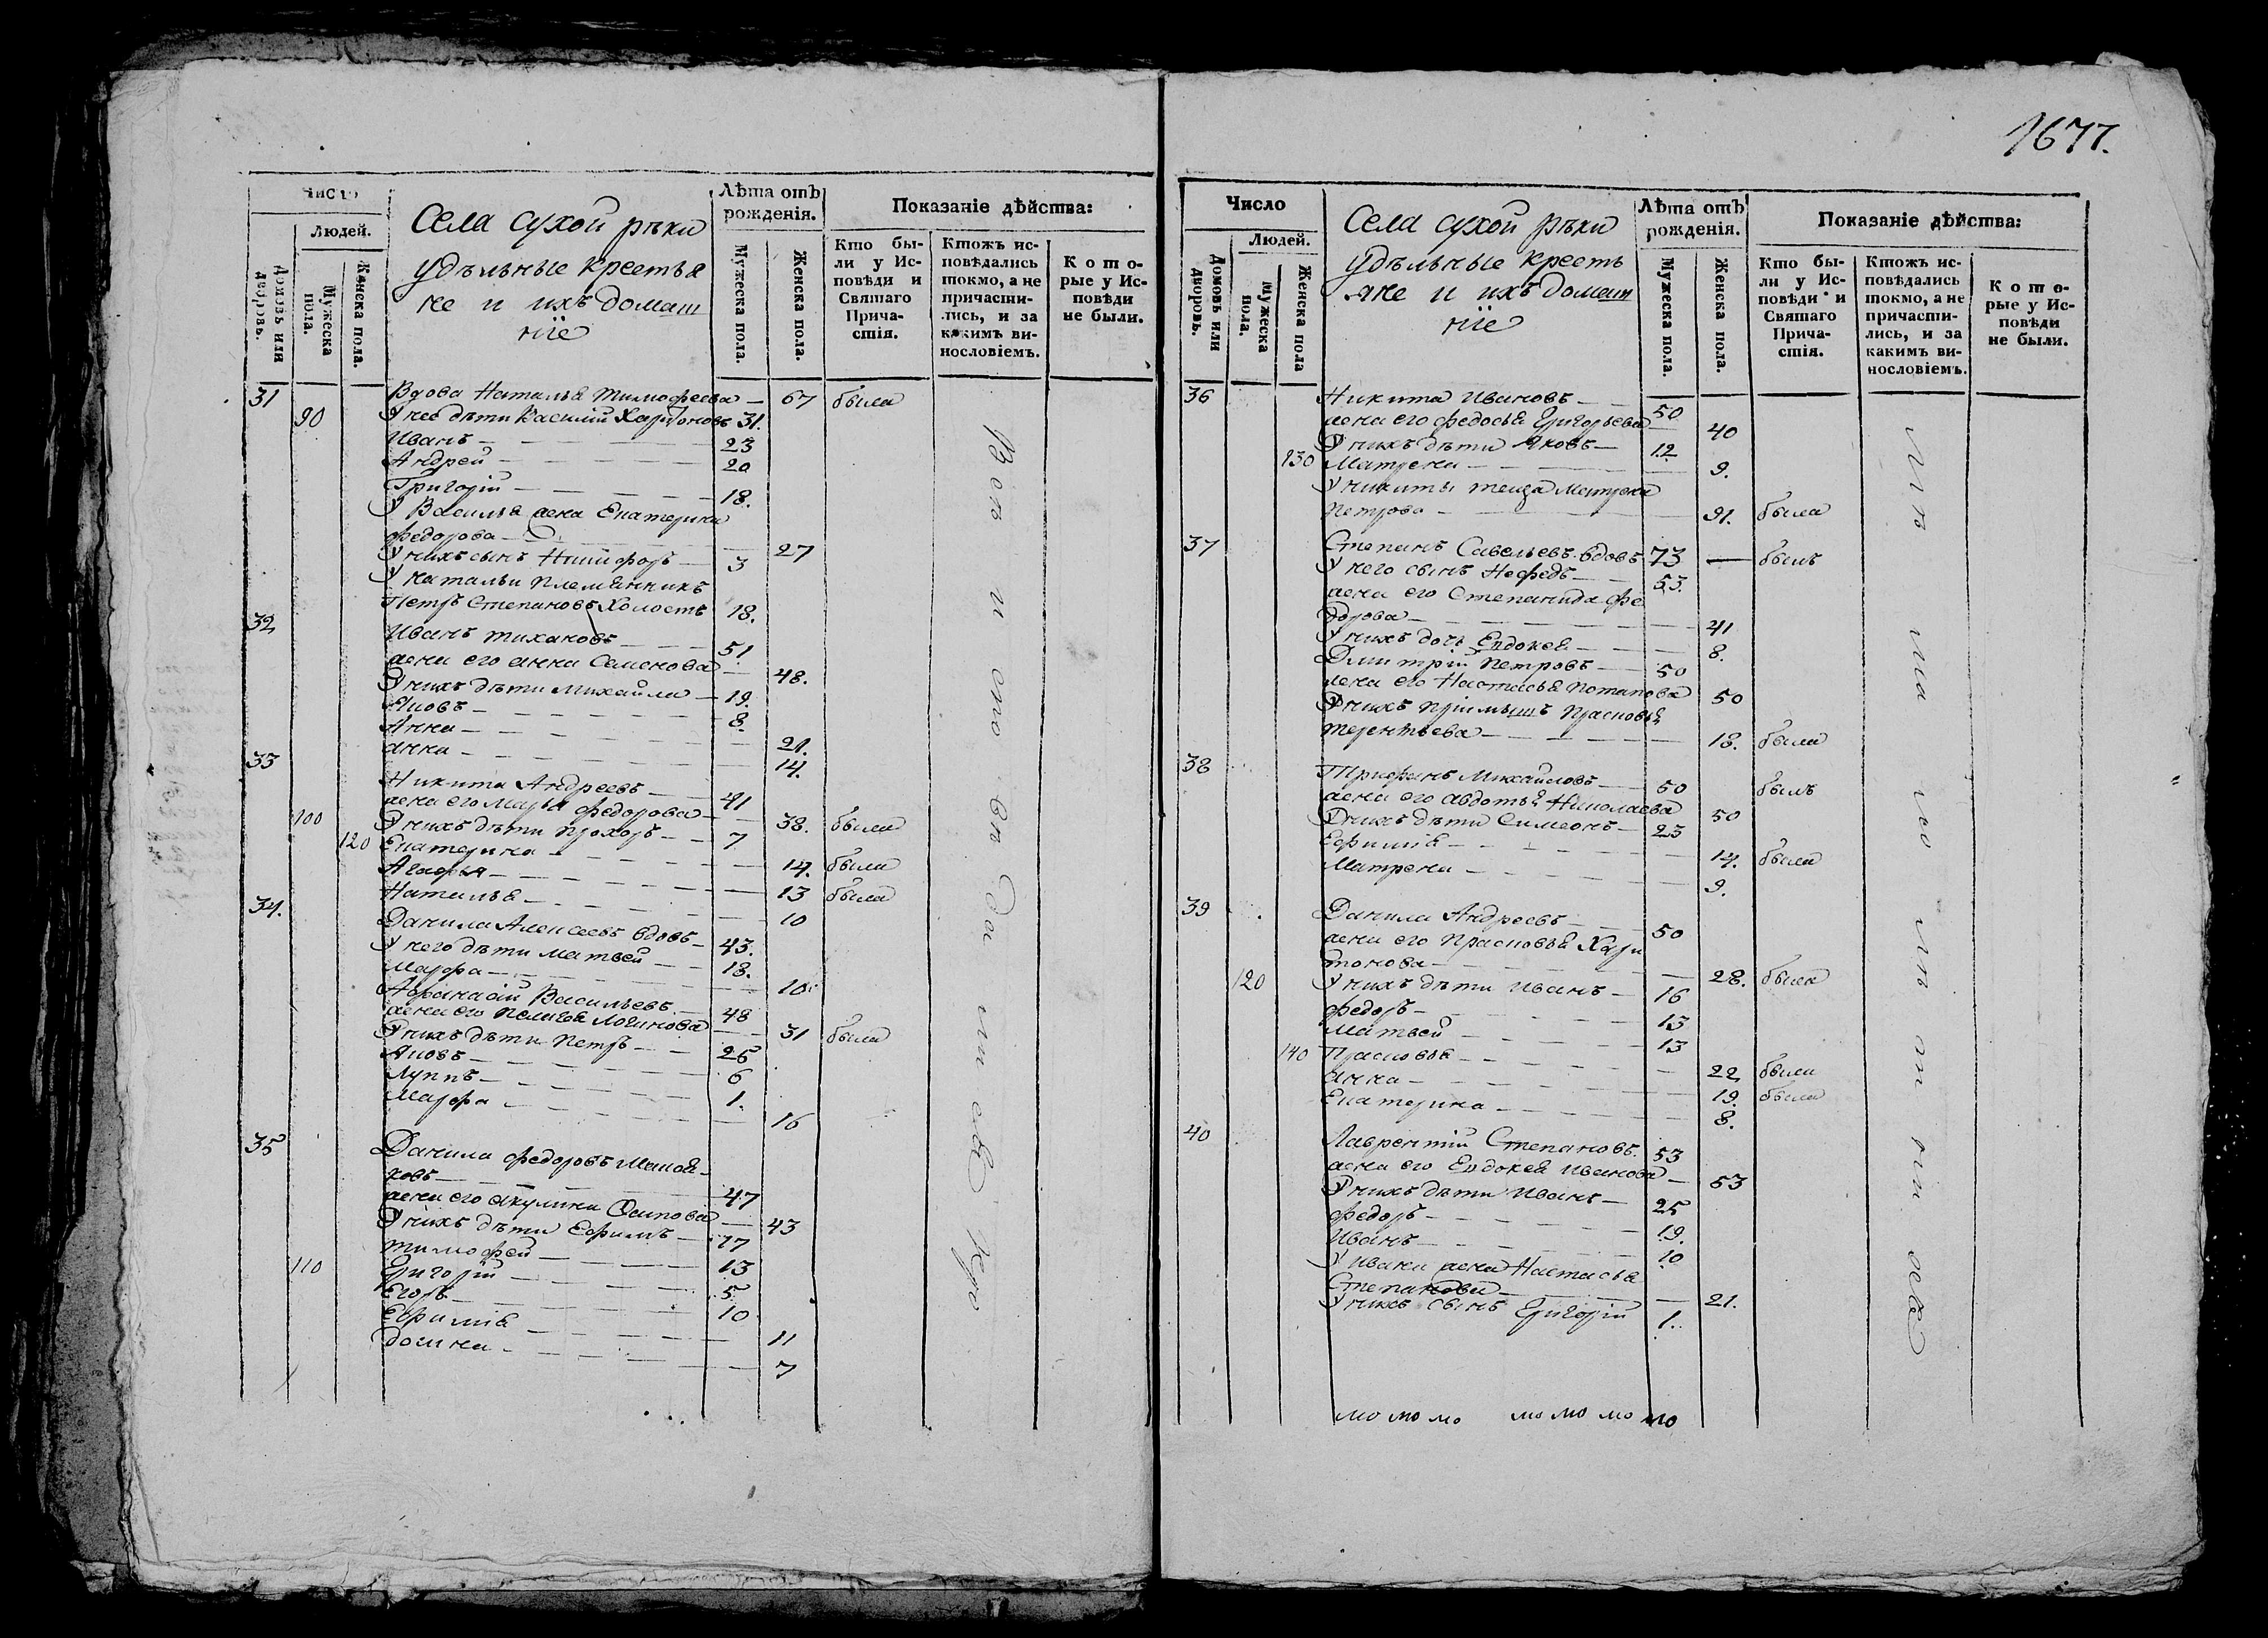 1677.
Число
Людей.
Домовъ или дворовъ.
Мужеска пола.
Женска пола.
Села сухой рѣки
удѣльные крестья
не и ихъ домаш
ніе
Лѣта отъ
рожденія.
Мужеска пола.
Женска пола.
Показаніе дѣйства:
Кто бы-
ли у Ис-
повѣди и
Святаго
Прича-
стія.
Ктожъ ис-
повѣдались
токмо, а не
причасти-
лись, и за
какимъ ви-
нословіемъ.
Кото-
рые у Ис-
повѣди
не были.
31 Вдова Наталья Тимофеева — 67 была
90 У нее дѣти Василій Харитоновъ 31.
Иванъ — 23
Андрей — 20
Григорій — 18.
У Василья жена Екатерина
Федорова — 27
У нихъ сынъ Никифоръ — 3
У натальи племянникъ
Петръ Степановъ холостъ 18.
32 Иванъ тихановъ — 51
жена его анна Семенова — 48.
У нихъ дѣти Михайла — 19.
Яковъ — 8.
Анна — 21.
анна — 14.
33 Никита Андреевъ — 41
жена его Марья федорова — 38. была
100 У нихъ дѣти прохоръ — 7
120 Екатерина — 14. была
Агафья — 13 была
Наталья — 10
34. Данила Алексеевъ вдовъ — 43.
У него дѣти матвей — 18.
Марфа — 10.
Афанасій Васильевъ — 48
жена его Пелагея Логинова — 31 была
У нихъ дѣти Петръ — 25
Яковъ — 6
Луппъ — 1.
Марфа — 16
35 Данила федоровъ
ховъ — 47
жена его акулина Осипова — 43
У нихъ дѣти Ефимъ — 17
тимофей — 13
110 Григорій — 5
Егоръ — 10
Ефимія — 11
домна — 7
Число
Людей.
Домовъ или дворовъ.
Мужеска пола.
Женска пола
Села сухой рѣки
удѣльные кресть
яне и ихъ домаш
ніе
Лѣта отъ
рожденія.
Мужеска пола.
Женска пола.
Показаніе дѣйства:
Кто бы-
ли у Ис-
повѣди и
Святаго
Прича-
стія.
Ктожъ ис-
повѣдались
токмо, а не
причасти-
лись, и за
какимъ ви-
нословіемъ.
Кото-
рые у Ис-
повѣди
не были.
36 Никита Ивановъ — 50
жена его федосья Григорьева — 40
У нихъ дѣти Яковъ — 12
130 Матрена — 9.
У никиты теща Матрена
Петрова — 91. была
37 Степанъ Савельевъ вдовъ 73 — былъ
У него сынъ Нефедъ — 53.
жена его Степанида фе
дорова — 41
У нихъ дочь Евдокея — 8.
Дмитрій Петровъ — 50
жена его Настасья потапова 50
У нихъ пріемышъ Прасковья
терентьева — 18. была
38 Трифанъ Михайловъ — 50 былъ
жена его авдотья Николаева 50
У нихъ дѣти Симеонъ — 23
Ефимія — 14. была
Матрена — 9.
39 Данила Андреевъ — 50
жена его Прасковья Хари
тонова — 28. была
120 У нихъ дѣти Иванъ — 16
федоръ — 13
Матвей — 13
140 Прасковья — 22 была
анна — 19. была
Екатерина — 8.
40 Лаврентій Степановъ. 53
жена его Евдокея Иванова — 53
У нихъ дѣти Иванъ — 25
федоръ — 19.
Иванъ — 10
У ивана жена Настасья
Степанова — 21.
У нихъ сынъ Григорій 1.
мо мо мо мо мо мо мо